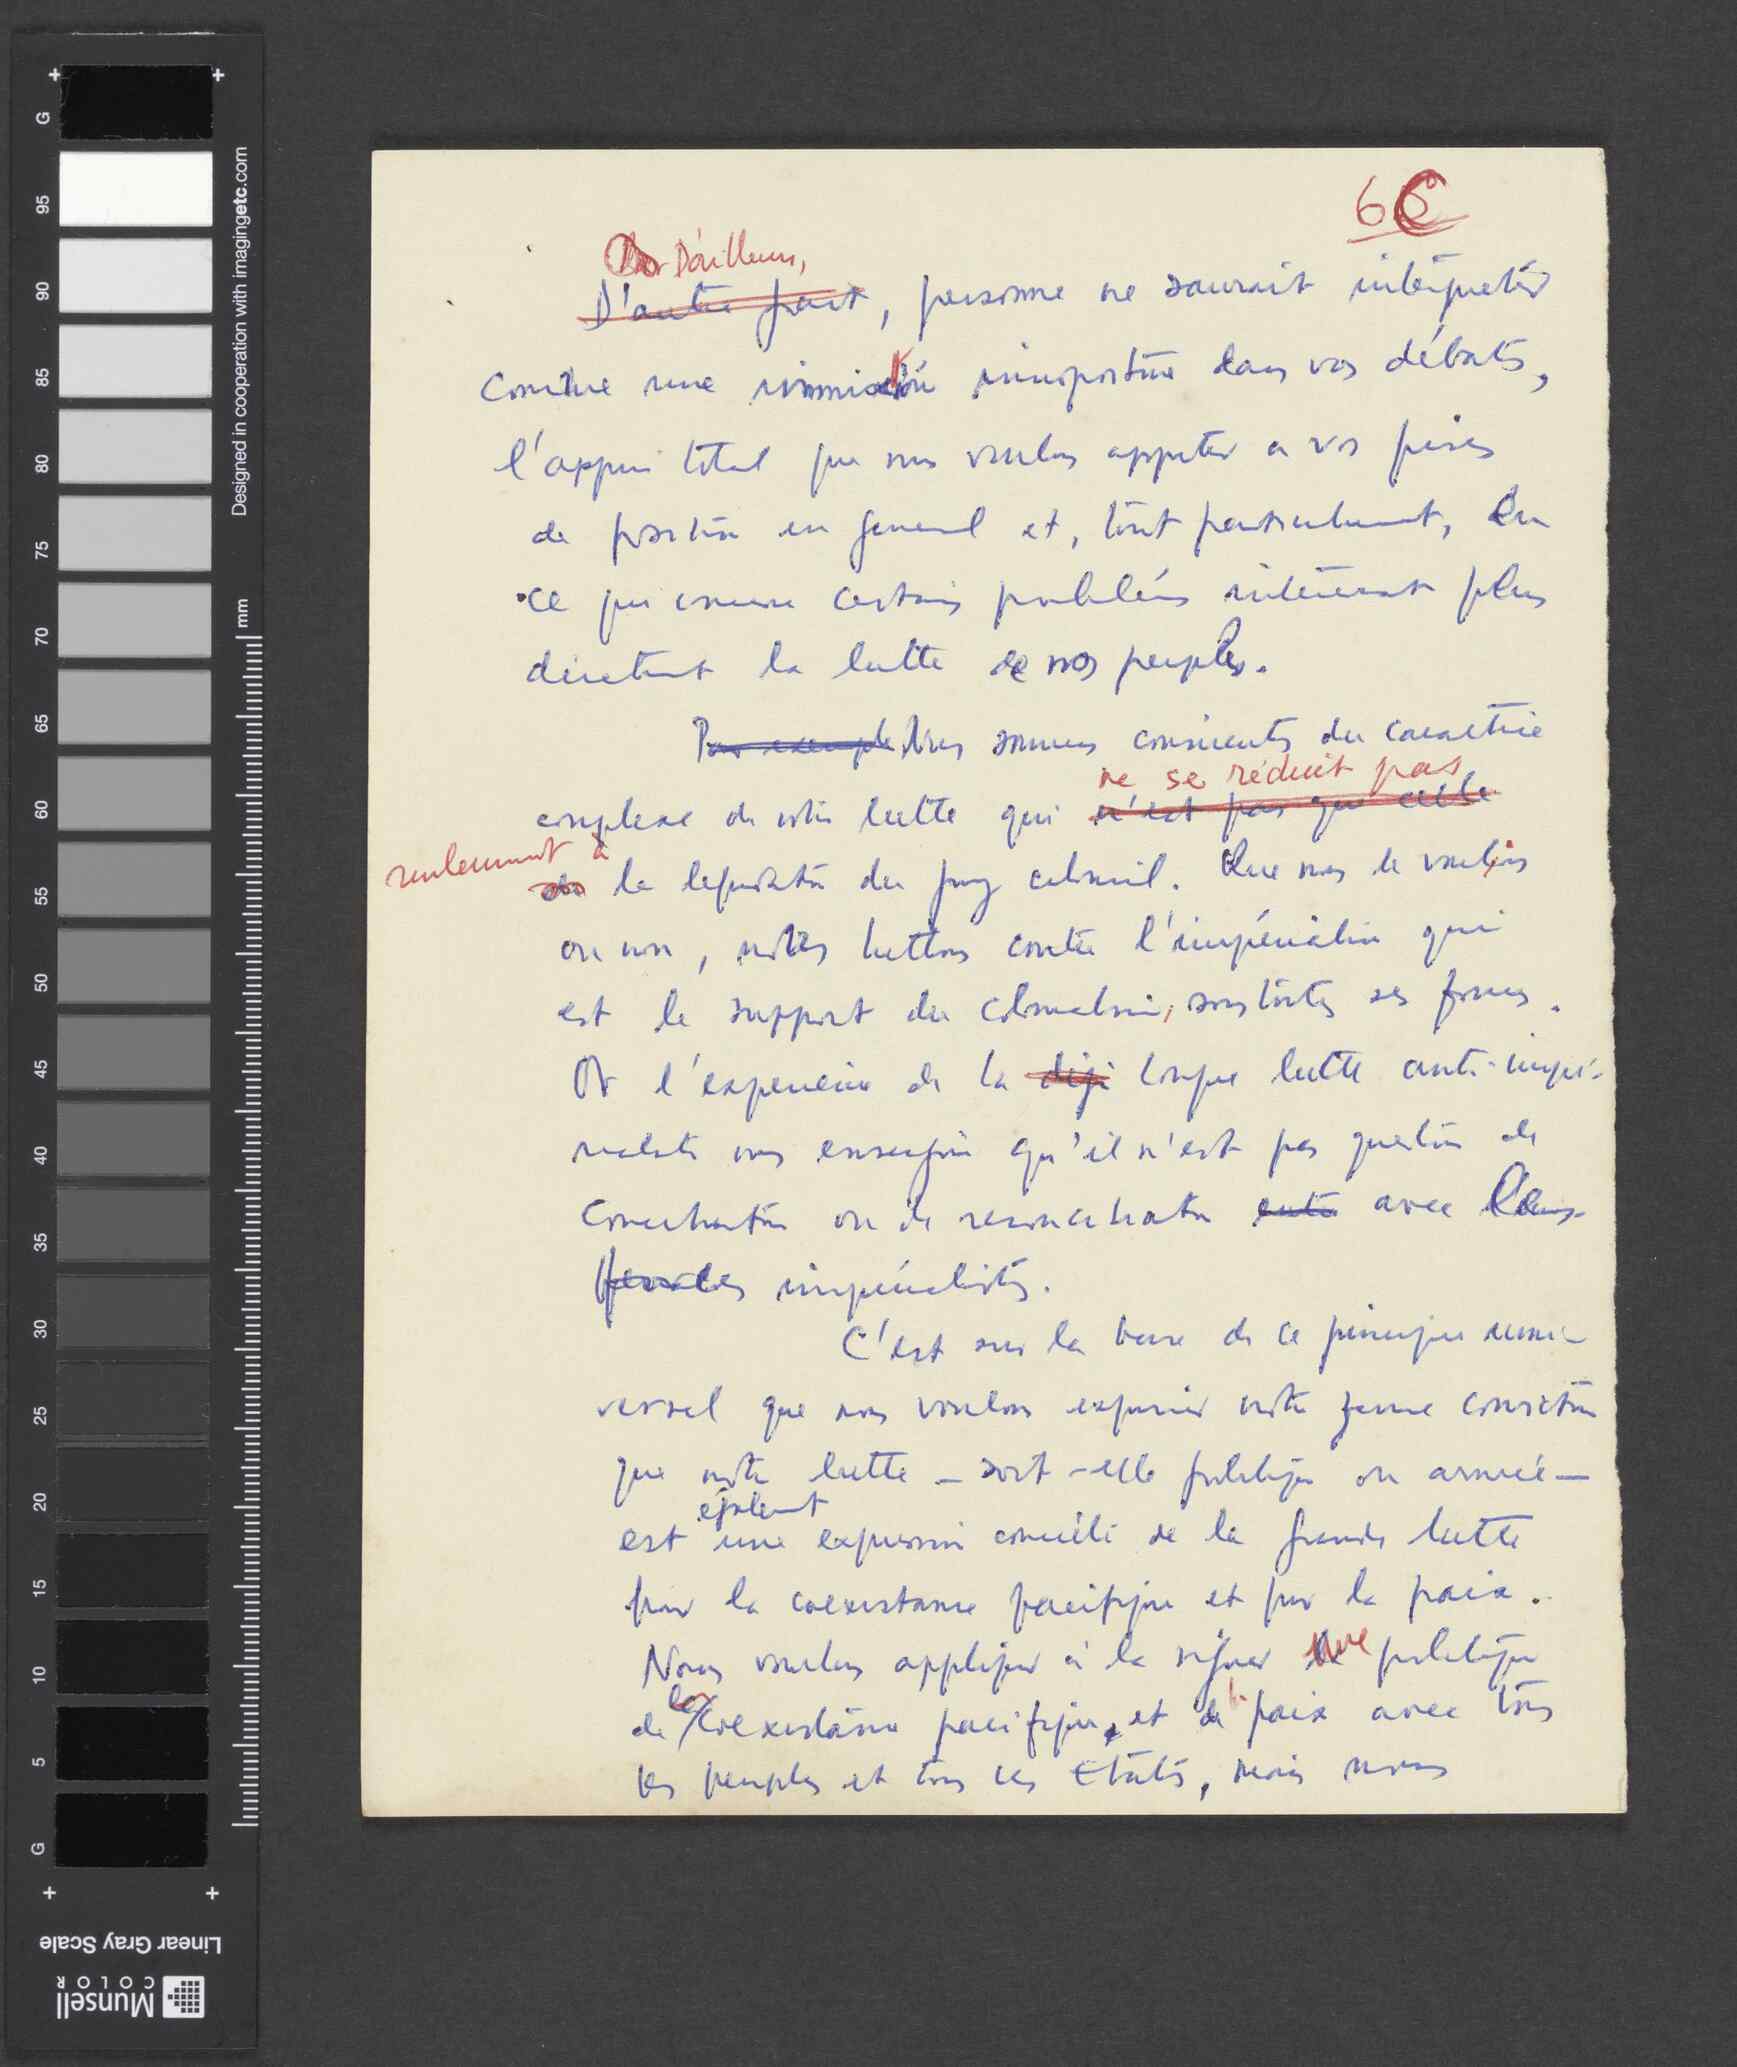 6
D'ailleurs,
D'autre part, personne ne saurait interpréter
comme une immixtion inoportune dans vos débats,
l'appui total que nous voulons apporter a vos prises
de position en general et, tout particulierement, en
ce qui concerne certains problèmes intéressant plus
directement la lutte de nos peuples.
Par exemple Nous sommes conscients du caractère
ne se réduit pas
complexe de notre lutte qui n'est pas que celle
seulement à
de la liquidation du joug colonial. Que nous le voulions
ou non, nous luttons contre l'impérialisme qui
est le support du colonialisme, sous toutes ses formes.
Or l'experience de la déjà longue lutte anti-impé-
rialiste nous enseigne qu'il n'est pas question de
conciliation ou de reconciliation entre avec les
impérialistes.
C'est sur la base de ce principe uni-
versel que nous voulons exprimer notre ferme conviction
que notre lutte — soit-elle politique ou armée —
également
est une expression concrète de la grande lutte
pour la coexistance pacifique et pour la paix.
Nous voulons appliquer à la rigueur une politique
de la coexistance pacifique, et de paix avec tous
les peuples et tous les Etats, mais nous
G
95
90
85
80
75
70
65
60
55
50
45
40
35
30
25
20
15
10
5
G
Designed in cooperation with imagingetc.com
mm
Linear Gray Scale
Munsell
COLOR